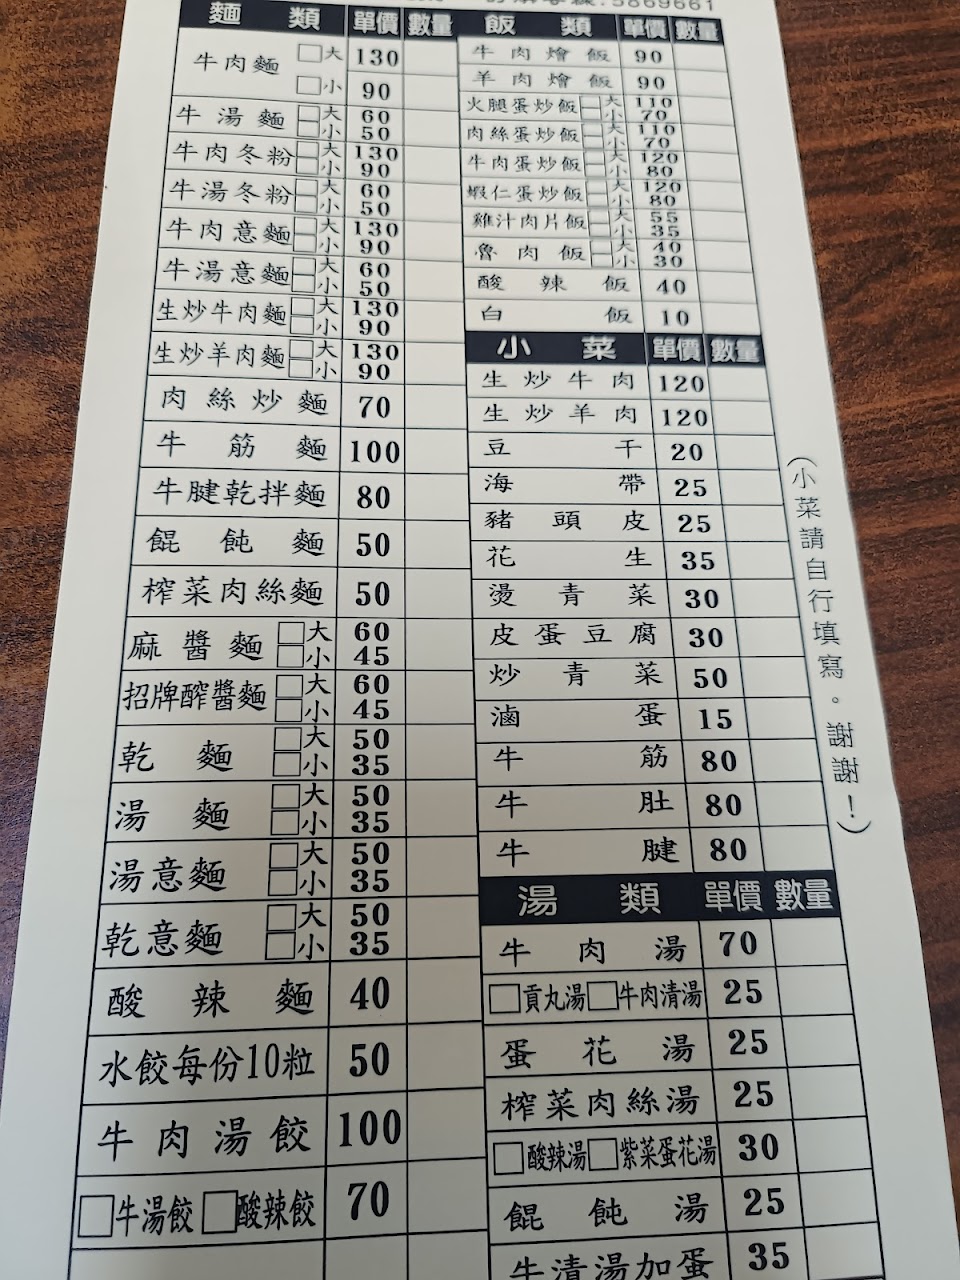 5869661
麵類 單價 數量
牛肉麵 □大 130
□小 90
牛湯麵 □大 60
□小 50
牛肉冬粉 □大 130
□小 90
牛湯冬粉 □大 60
□小 50
牛肉意麵 □大 130
□小 90
牛湯意麵 □大 60
□小 50
生炒牛肉麵 □大 130
□小 90
生炒羊肉麵 □大 130
□小 90
肉絲炒麵 70
牛筋麵 100
牛腱乾拌麵 80
餛飩麵 50
榨菜肉絲麵 50
麻醬麵 □大 60
□小 45
招牌醡醬麵 □大 60
□小 45
乾麵 □大 50
□小 35
湯麵 □大 50
□小 35
湯意麵 □大 50
□小 35
乾意麵 □大 50
□小 35
酸辣麵 40
水餃每份10粒 50
牛肉湯餃 100
□牛湯餃 □酸辣餃 70
飯類 單價 數量
牛肉燴飯 90
羊肉燴飯 90
火腿蛋炒飯 □大 110
□小 70
肉絲蛋炒飯 □大 110
□小 70
牛肉蛋炒飯 □大 120
□小 80
蝦仁蛋炒飯 □大 120
□小 80
雞汁肉片飯 □大 55
□小 35
魯肉飯 □大 40
□小 30
酸辣飯 40
白飯 10
小菜 單價 數量
生炒牛肉 120
生炒羊肉 120
豆干 20
海帶 25
豬頭皮 25
花生 35
燙青菜 30
皮蛋豆腐 30
炒青菜 50
滷蛋 15
牛筋 80
牛肚 80
牛腱 80
湯類 單價 數量
牛肉湯 70
□貢丸湯 □牛肉清湯 25
蛋花湯 25
榨菜肉絲湯 25
□酸辣湯 □紫菜蛋花湯 30
餛飩湯 25
牛清湯加蛋 35
(小菜請自行填寫。謝謝!)